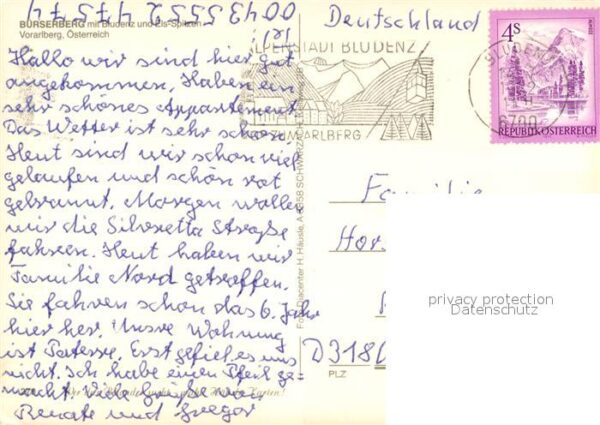 0043 5552 47574
BÜRSERBERG mit Bludenz und Els-Spitzen
Vorarlberg, Österreich
Hallo wir sind hier gut
angekommen, Haben ein
sehr schönes Appartement
Das Wetter ist sehr schön
Heut sind wir schon viel
gelaufen und schön rot
gebrannt. Morgen wollen
wir die Silvretta Straße
fahren. Heut haben wir
Familie Nord getroffen.
Sie fahren schon das 6. Jahr
hier her. Unsre Wohnung
ist Paterre. Erst gefiel es uns
nicht. Ich habe einen Pfeil ge=
macht Viele Grüße von
Renate und Gregor
Foto Diacenter H. Häusle, A-6858 SCHWARZACH
Deutschland
ALPENSTADT BLUDENZ
VORARLBERG
BLUDENZ
6700
4S
REPUBLIK ÖSTERREICH
Familie
Hor
D3180
PLZ
privacy protection
Datenschutz